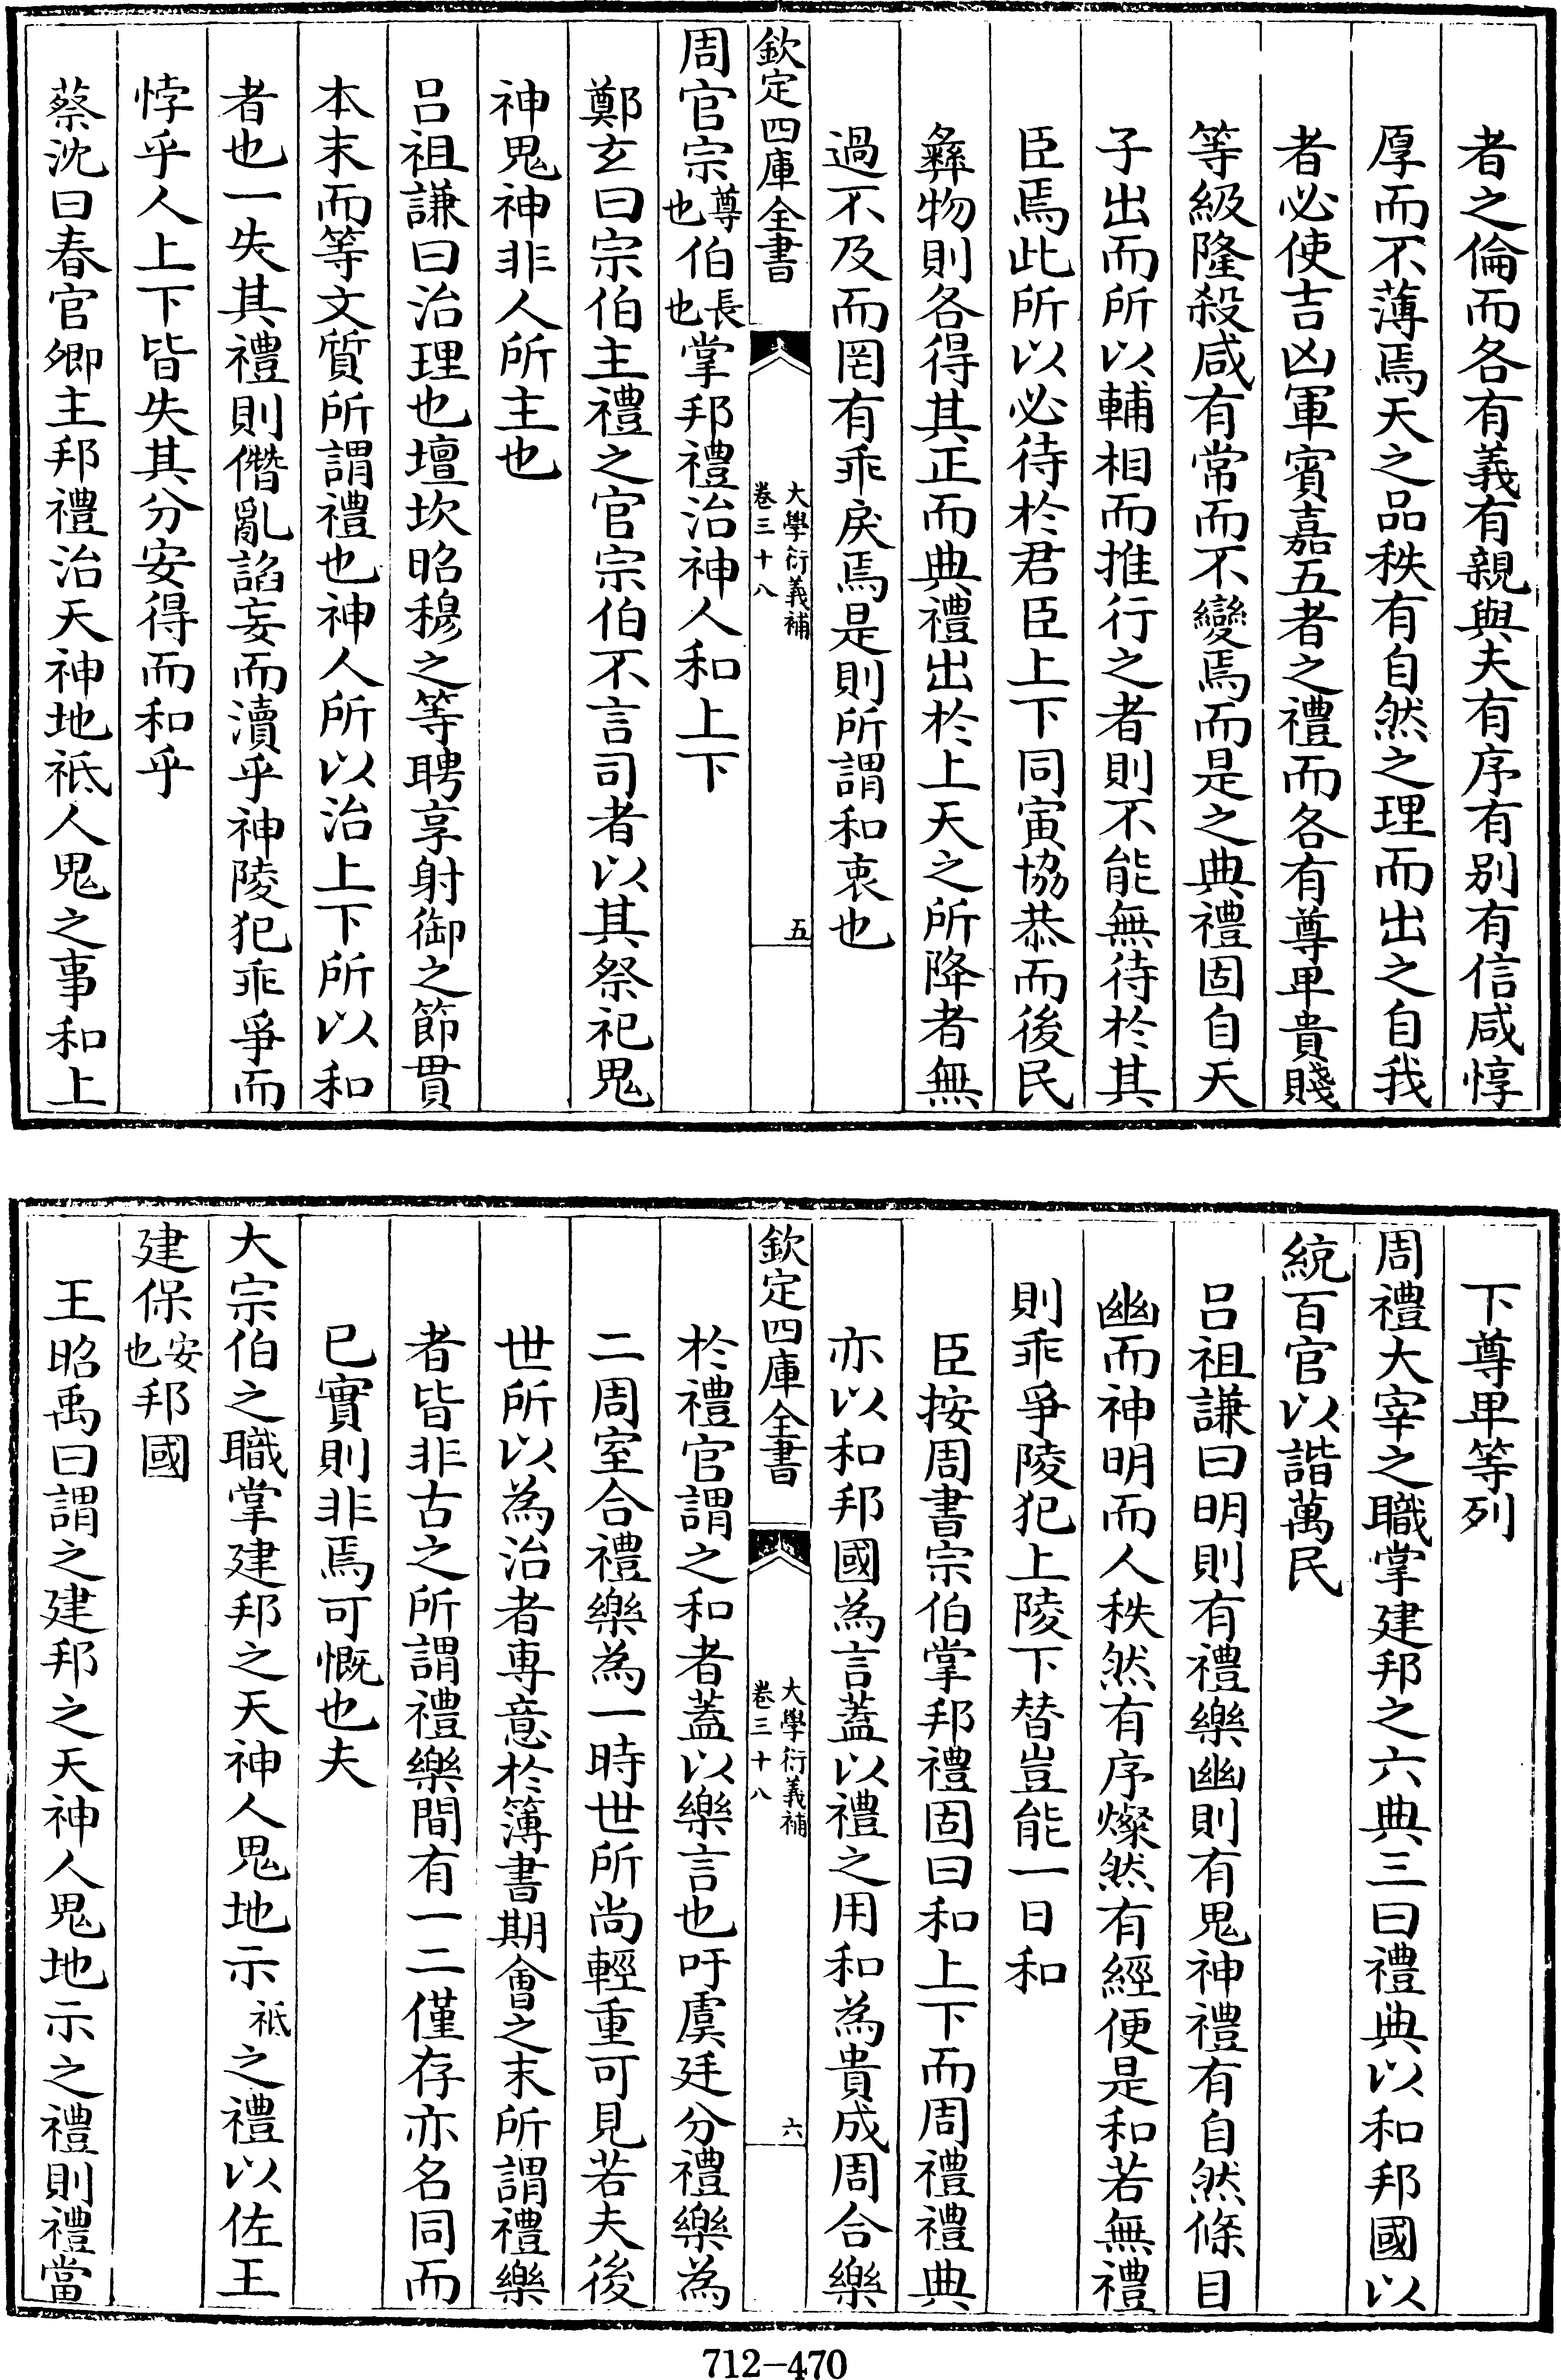 者之倫而各有義有親與夫有序有别有信咸惇
厚而不薄焉天之品秩有自然之理而出之自我
者必使吉凶軍賓嘉五者之禮而各有尊卑貴賤
等級隆殺咸有常而不變焉而是之典禮固自天
子出而所以輔相而推行之者則不能無待於其
臣焉此所以必待於君臣上下同寅協恭而後民
彝物則各得其正而典禮出於上天之所降者無
過不及而罔有乖戾焉是則所謂和衷也
欽定四庫全書 大學衍義補 卷三十八 五
周官宗尊也伯長也掌邦禮治神人和上下
鄭玄曰宗伯主禮之官宗伯不言司者以其祭祀鬼
神鬼神非人所主也
吕祖謙曰治理也壇坎昭穆之等聘享射御之節貫
本末而等文質所謂禮也神人所以治上下所以和
者也一失其禮則僭亂謟妄而瀆乎神陵犯乖爭而
悖乎人上下皆失其分安得而和乎
蔡沈曰春官卿主邦禮治天神地祇人鬼之事和上
下尊卑等列
周禮大宰之職掌建邦之六典三曰禮典以和邦國以
統百官以諧萬民
吕祖謙曰明則有禮樂幽則有鬼神禮有自然條目
幽而神明而人秩然有序燦然有經便是和若無禮
則乖爭陵犯上陵下替豈能一日和
臣按周書宗伯掌邦禮固曰和上下而周禮禮典
亦以和邦國為言蓋以禮之用和為貴成周合樂
欽定四庫全書 大學衍義補 卷三十八 六
於禮官謂之和者蓋以樂言也吁虞廷分禮樂為
二周室合禮樂為一時世所尚輕重可見若夫後
世所以為治者專意於簿書期會之末所謂禮樂
者皆非古之所謂禮樂間有一二僅存亦名同而
已實則非焉可慨也夫
大宗伯之職掌建邦之天神人鬼地示祇之禮以佐王
建保安也邦國
王昭禹曰謂之建邦之天神人鬼地示之禮則禮當
712-470